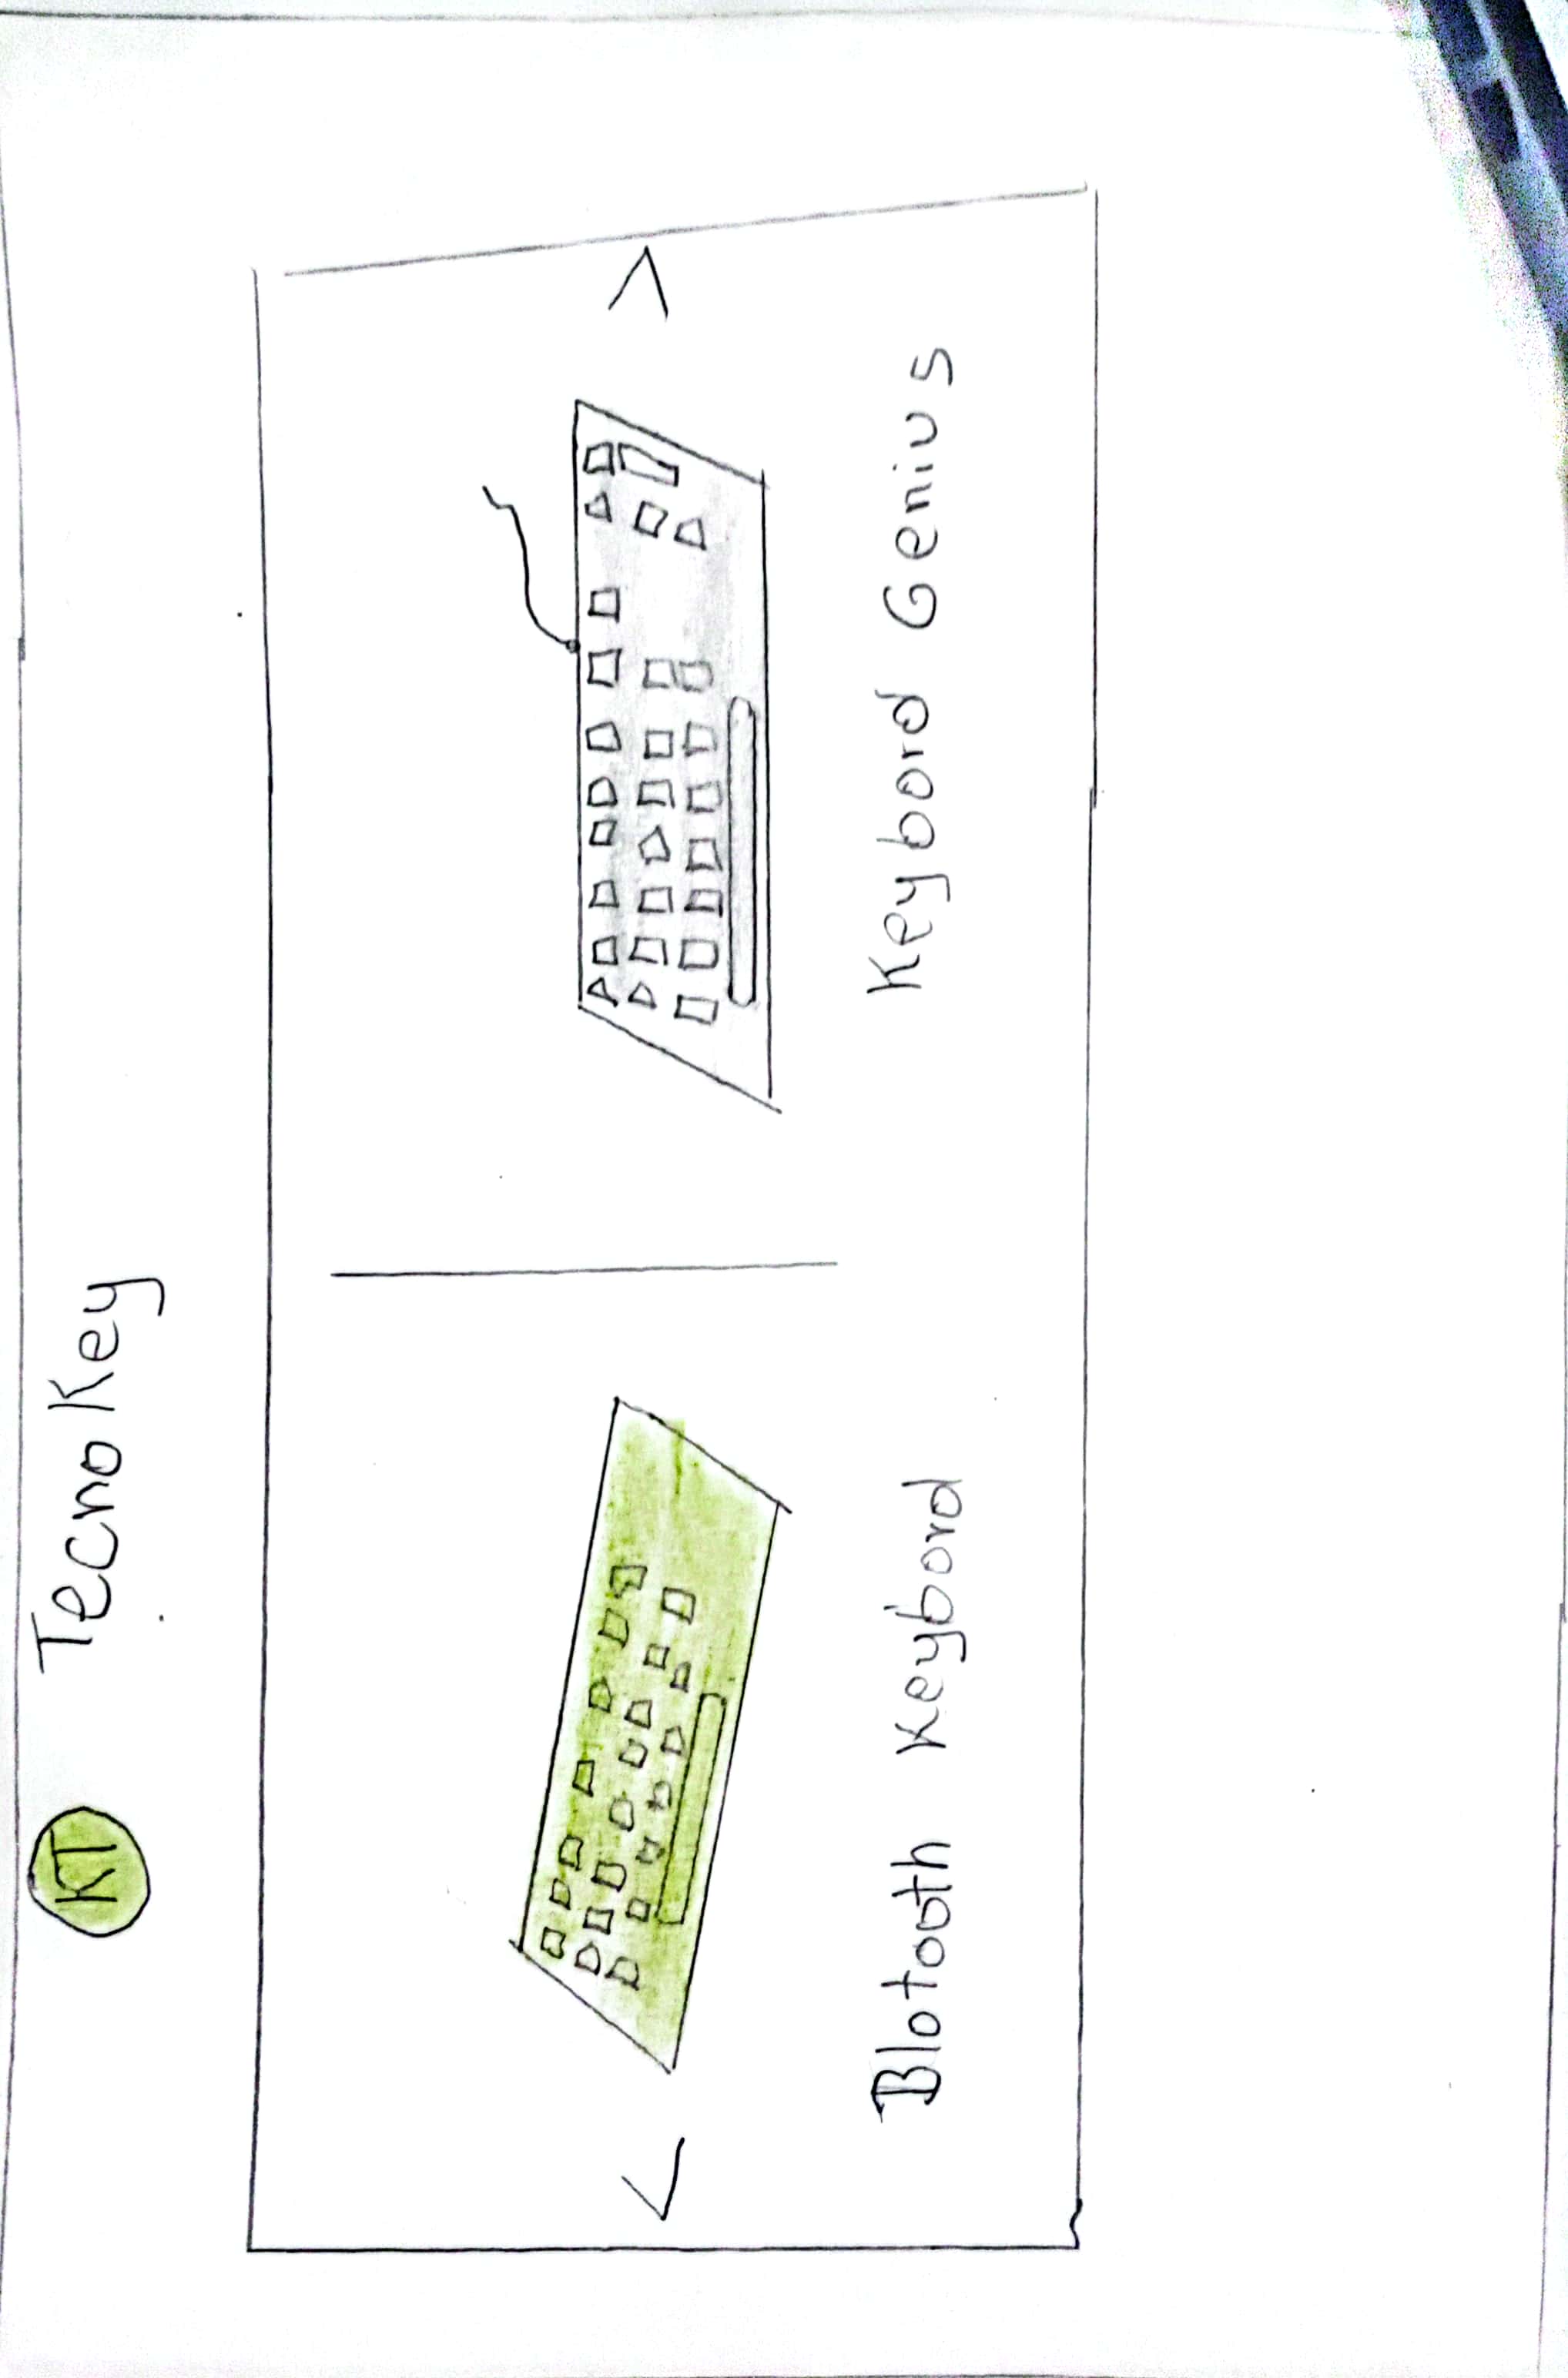 KT Tecno Key
Blotooth Keybord
Keybord Genius